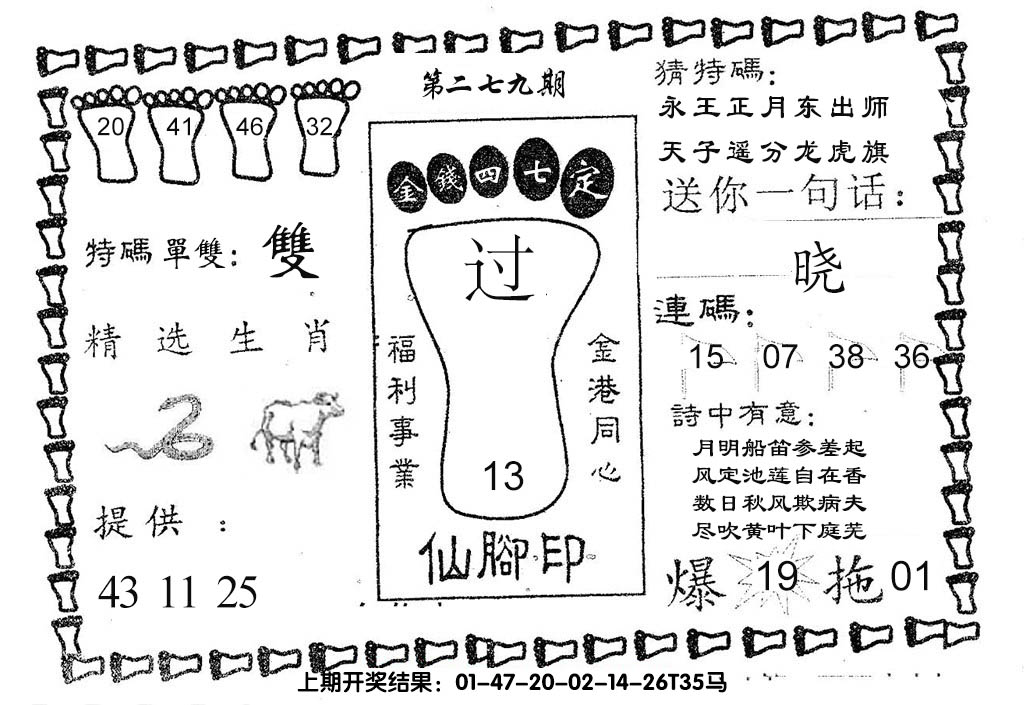 第二七九期
20 41 46 32
特碼單雙：雙
精选生肖
提供：
43 11 25
金錢四七定
过
福利事業
金港同心
13
仙腳印
猜特碼：
永王正月东出师
天子遥分龙虎旗
送你一句话：
晓
連碼：
15 07 38 36
詩中有意：
月明船笛参差起
风定池莲自在香
数日秋风欺病夫
尽吹黄叶下庭芜
爆 19 拖 01
上期开奖结果：01-47-20-02-14-26T35马